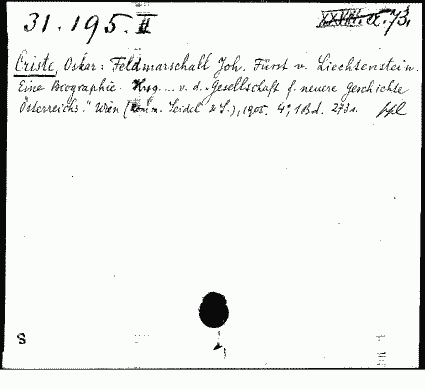 31.195.II
XXVIII. α. 73.
Criste, Oskar: Feldmarschall Joh. Fürst v. Liechtenstein.
Eine Biographie. Hrsg. ... v. d. „Gesellschaft f. neuere Geschichte
Österreichs." Wien (Komm. Seidel & S.), 1905. 4°, 1 Bd. 273 s.
S